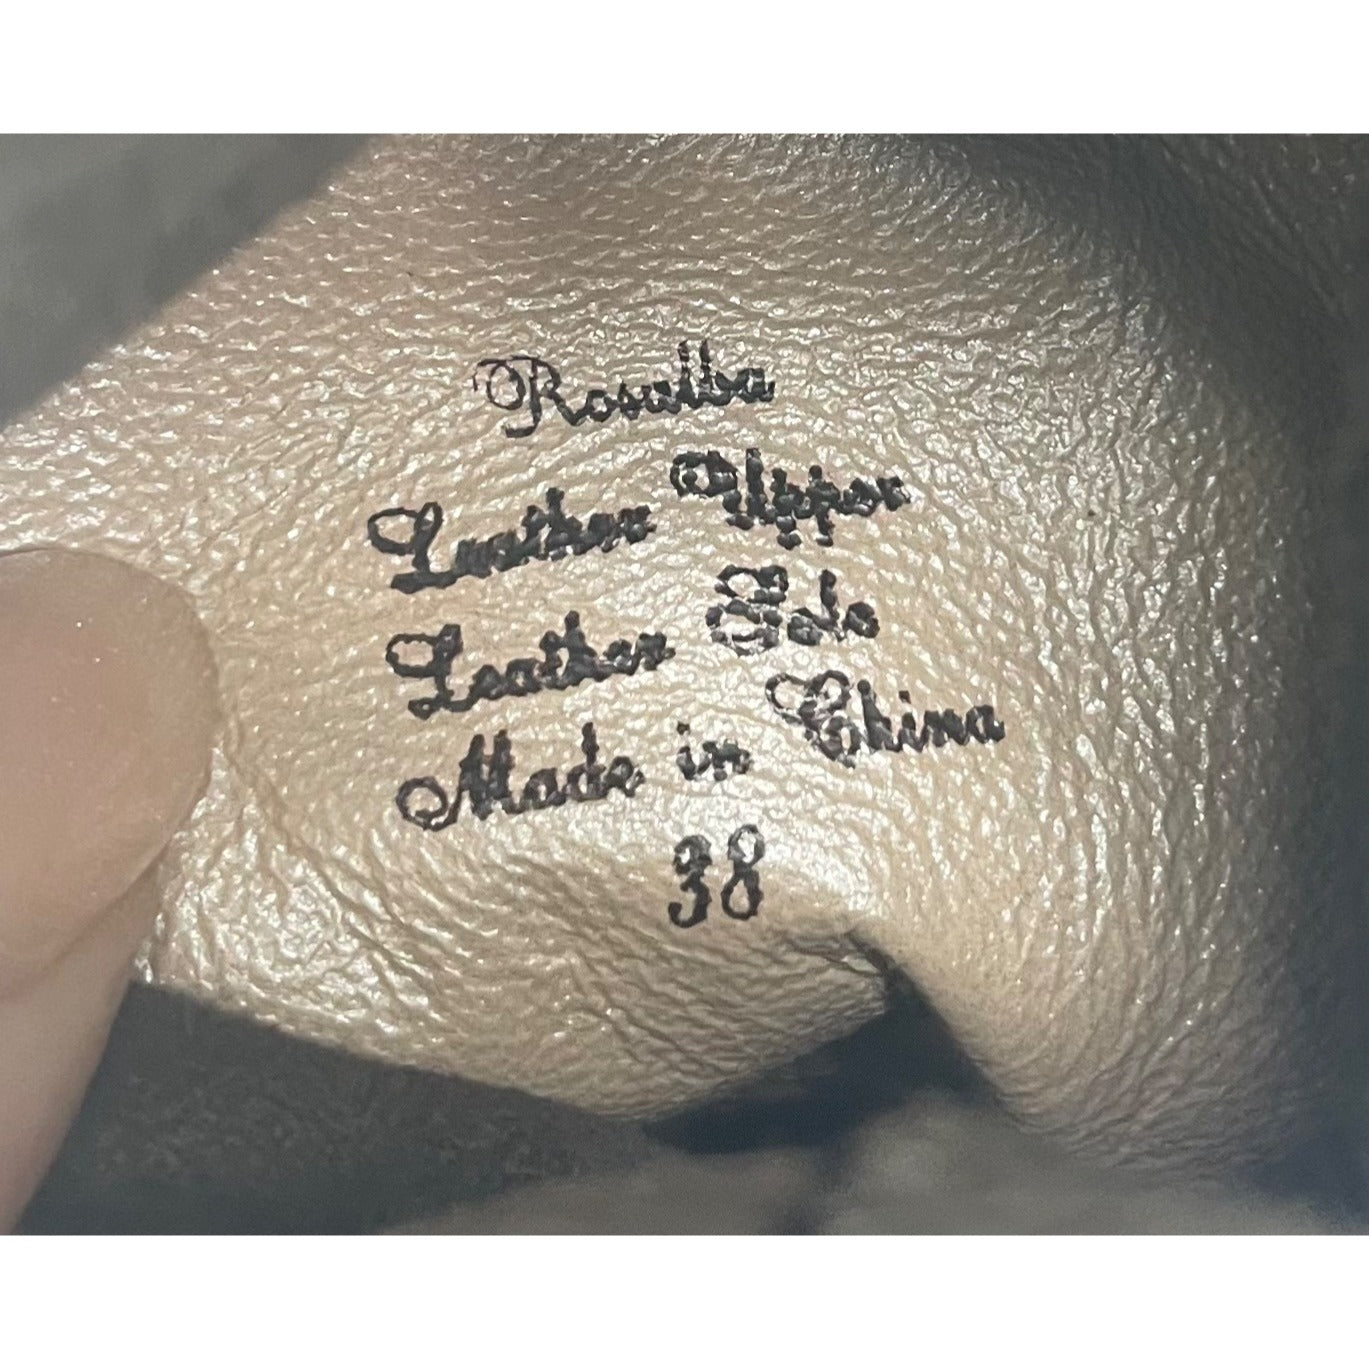 Rosalba
Leather Upper
Leather Sole
Made in China
38